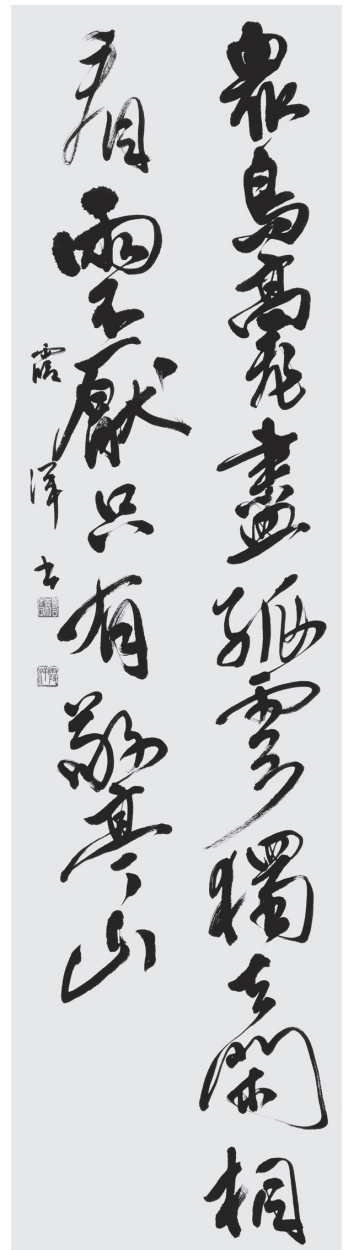 眾鳥高飛盡孤雲獨去閑相
看兩不厭只有敬亭山
霞洋書